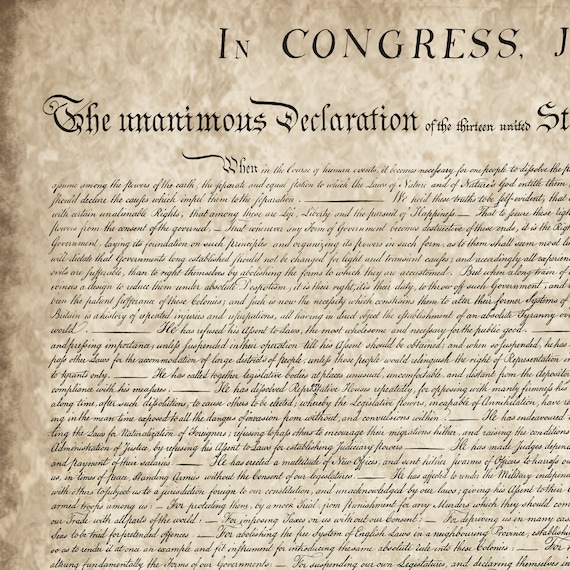 In CONGRESS, J
The unanimous Declaration of the thirteen united St
When in the Course of human events, it becomes necessary for one people to dissolve the p
assume among the powers of the earth, the separate and equal station to which the Laws of Nature and of Nature's God entitle them,
should declare the causes which impel them to the separation. We hold these truths to be self-evident, that
with certain unalienable Rights, that among these are Life, Liberty and the pursuit of Happiness.— That to secure these righ
powers from the consent of the governed, — That whenever any Form of Government becomes destructive of these ends, it is the Righ
Government, laying its foundation on such principles and organizing its powers in such form, as to them shall seem most li
will dictate that Governments long established should not be changed for light and transient causes; and accordingly all experien
evils are sufferable, than to right themselves by abolishing the forms to which they are accustomed. But when a long train of
evinces a design to reduce them under absolute Despotism, it is their right, it is their duty, to throw off such Government, and
been the patient sufferance of these Colonies; and such is now the necessity which constrains them to alter their former Systems of
Britain is a history of repeated injuries and usurpations, all having in direct object the establishment of an absolute Tyranny ov
world. He has refused his Assent to Laws, the most wholesome and necessary for the public good.
and pressing importance, unless suspended in their operation till his Assent should be obtained; and when so suspended, he has
pass other Laws for the accommodation of large districts of people, unless those people would relinquish the right of Representation in
to tyrants only. He has called together legislative bodies at places unusual, uncomfortable, and distant from the depositor
compliance with his measures. He has dissolved Representative Houses repeatedly, for opposing with manly firmness his
a long time, after such dissolutions, to cause others to be elected; whereby the Legislative powers, incapable of Annihilation, have re
ing in the mean time exposed to all the dangers of invasion from without, and convulsions within. He has endeavoured
ting the Laws for Naturalization of Foreigners; refusing to pass others to encourage their migrations hither, and raising the conditions
Administration of Justice, by refusing his Assent to Laws for establishing Judiciary powers. He has made Judges depend
and payment of their salaries. He has erected a multitude of New Offices, and sent hither swarms of Officers to harass ou
us, in times of peace, Standing Armies without the Consent of our legislatures. He has affected to render the Military independe
with others to subject us to a jurisdiction foreign to our constitution, and unacknowledged by our laws; giving his Assent to their
armed troops among us: — For protecting them, by a mock Trial, from punishment for any Murders which they should com
our Trade with all parts of the world: — For imposing Taxes on us without our Consent: — For depriving us in many cas
Seas to be tried for pretended offences — For abolishing the free System of English Laws in a neighbouring Province, establish
so as to render it at once an example and fit instrument for introducing the same absolute rule into these Colonies: — For
altering fundamentally the Forms of our Governments: — For suspending our own Legislatures, and declaring themselves in